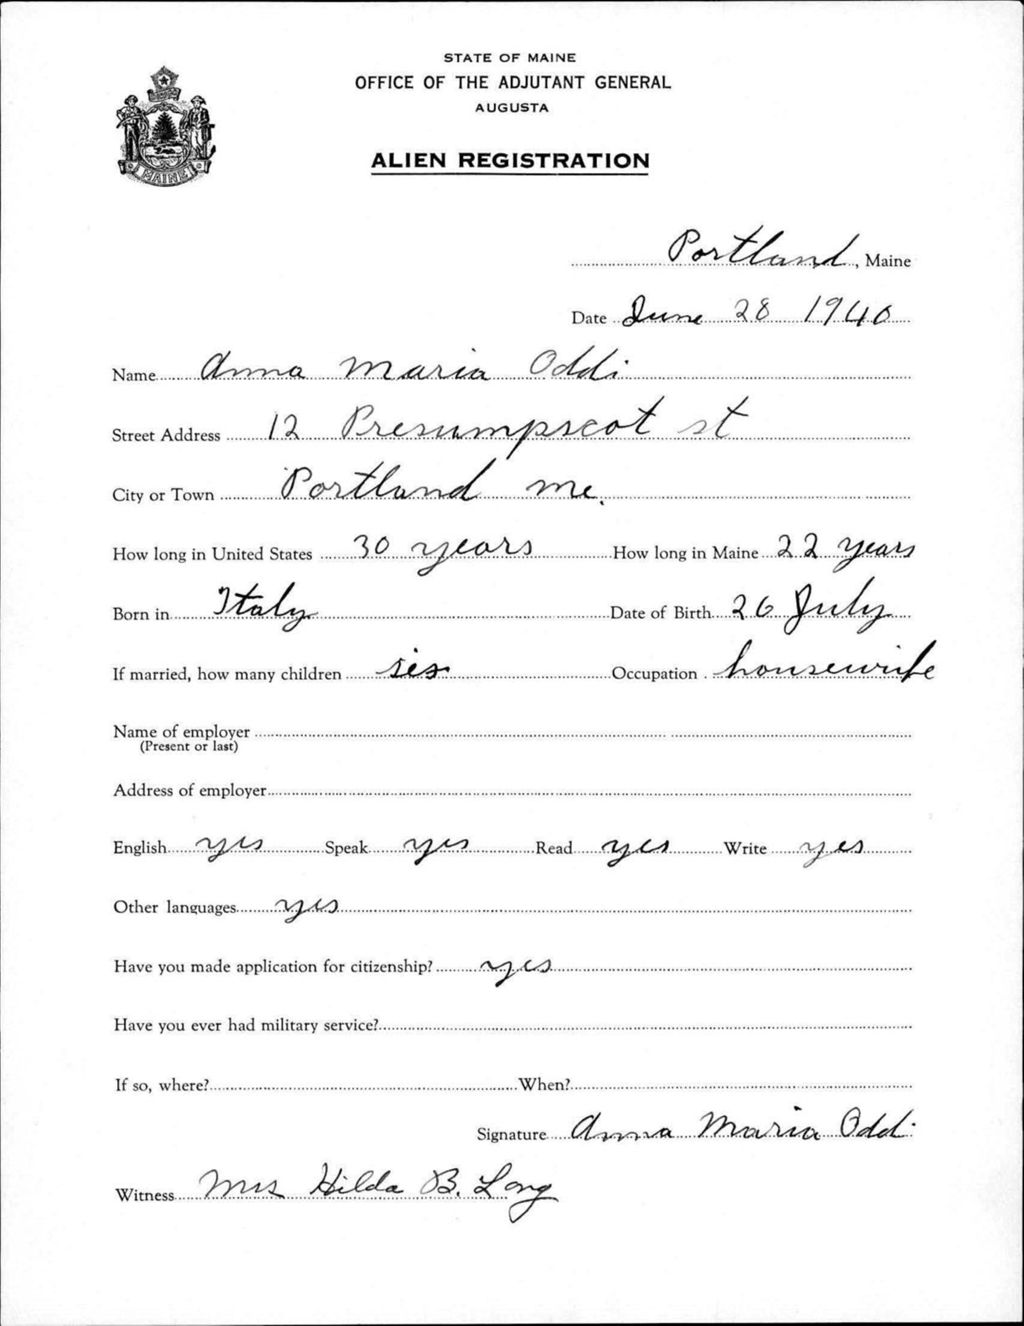 STATE OF MAINE
OFFICE OF THE ADJUTANT GENERAL
AUGUSTA
ALIEN REGISTRATION
MAINE
Portland, Maine
Date June 28 1940
Name Anna Maria Oddi
Street Address 12 Presumpscot st
City or Town Portland Me.
How long in United States 30 years How long in Maine 22 years
Born in Italy Date of Birth 26 July
If married, how many children sis Occupation housewife
Name of employer
(Present or last)
Address of employer
English yes Speak yes Read yes Write yes
Other languages yes
Have you made application for citizenship? yes
Have you ever had military service?
If so, where? When?
Signature Anna Maria Oddi
Witness Mrs Hilda B. Long